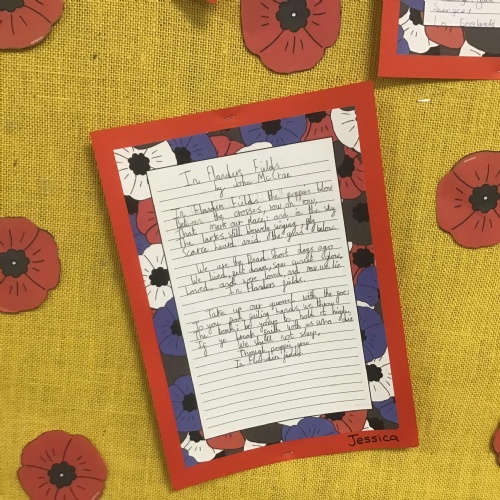 In England
In Flanders Fields
by John McCrae
In Flanders Fields the poppies blow
Between the crosses, row on row,
That mark our place; and in the sky
The larks, still bravely singing, fly
scarce heard amid the guns below.
We are the Dead. Short days ago
We lived, felt dawn, saw sunset glow,
Loved and were loved, and now we lie
In Flanders fields.
Take up our quarrel with the foe:
To you from failing hands we throw
The torch; be yours to hold it high.
If ye break faith with us who
We shall not sleep,
Though poppies
In Flanders fields.
Jessica